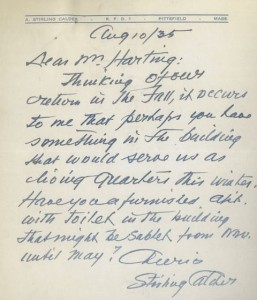 A. STIRLING CALDER R. F. D. 1 PITTSFIELD MASS.
Aug 10/35
Dear Mr. Harting:
Thinking of our
return in the Fall, it occurs
to me that perhaps you have
something in the building
that would serve us as
living quarters this winter.
Have you a furnished apt.
with toilet in the building
that might be sublet from Nov.
until May? Cheerio
Stirling Calder